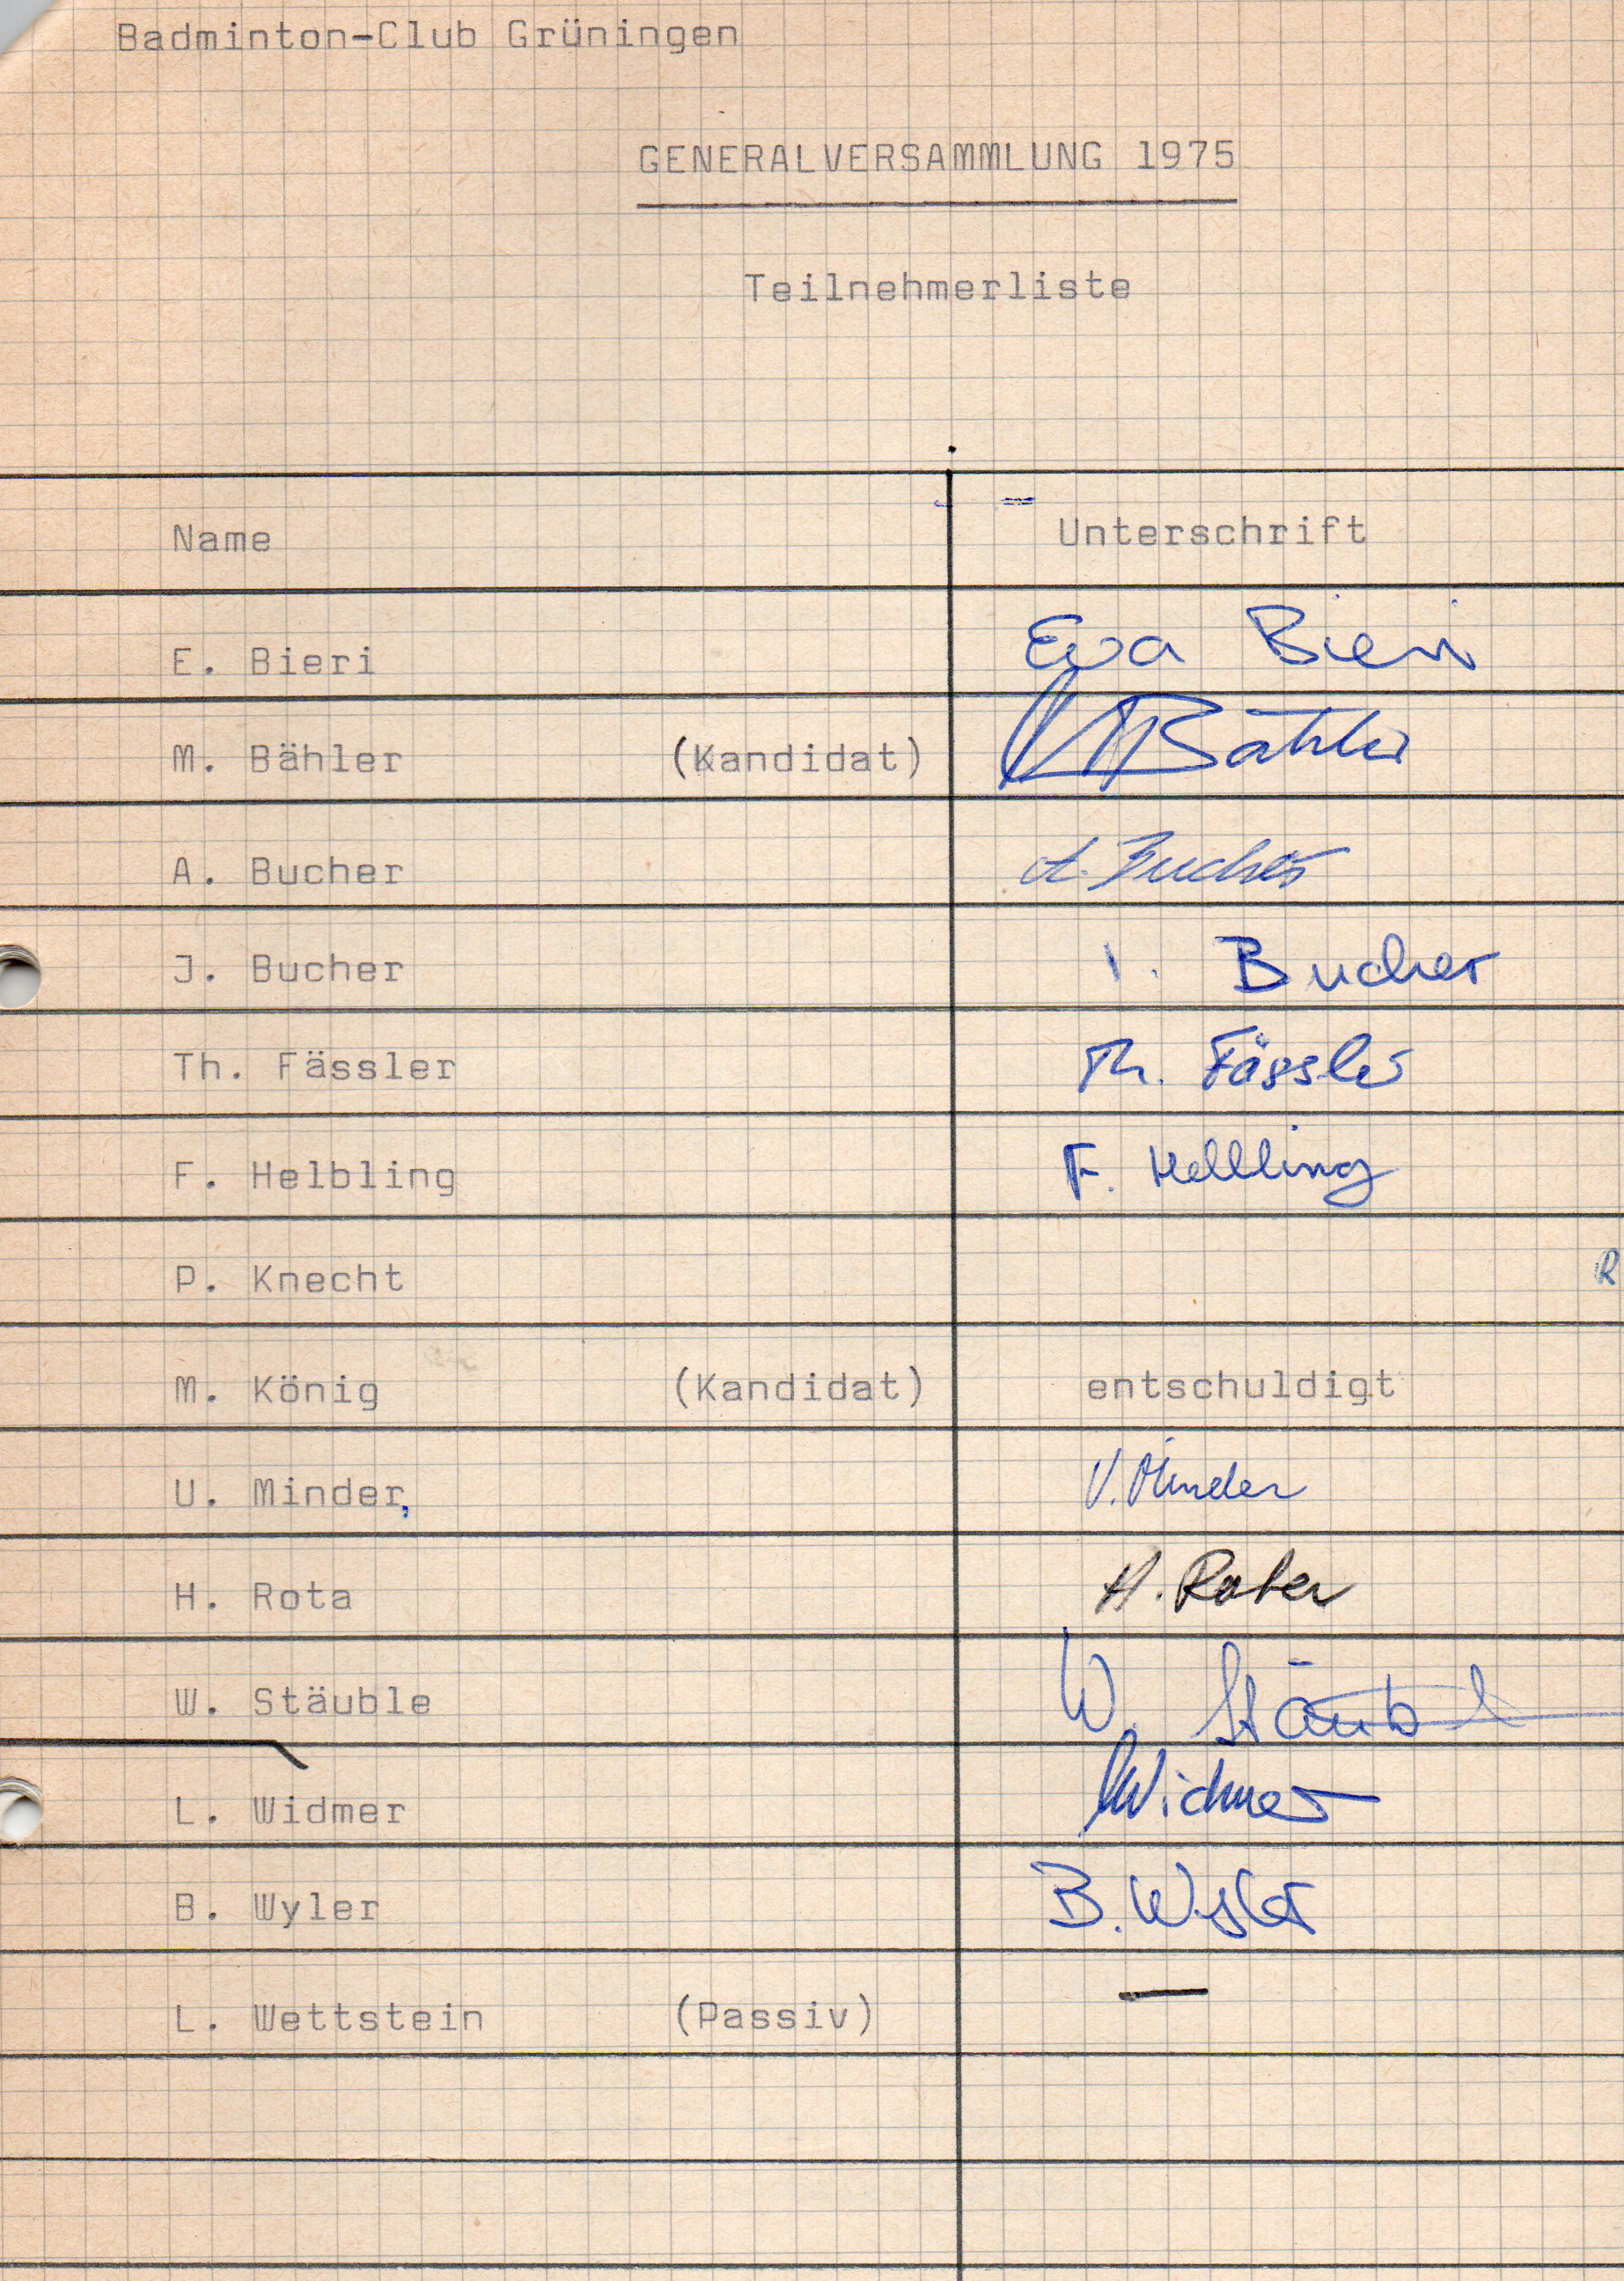 Badminton-Club Grüningen
GENERALVERSAMMLUNG 1975
Teilnehmerliste
Name Unterschrift
E. Bieri Eva Bieri
M. Bähler (Kandidat) M Bähler
A. Bucher A. Bucher
J. Bucher J. Bucher
Th. Fässler Th. Fässler
F. Helbling F. Helbling
P. Knecht R
M. König (Kandidat) entschuldigt
U. Minder, U. Minder
H. Rota H. Rota
W. Stäuble W. Stäuble
L. Widmer L Widmer
B. Wyler B. Wyler
L. Wettstein (Passiv) —